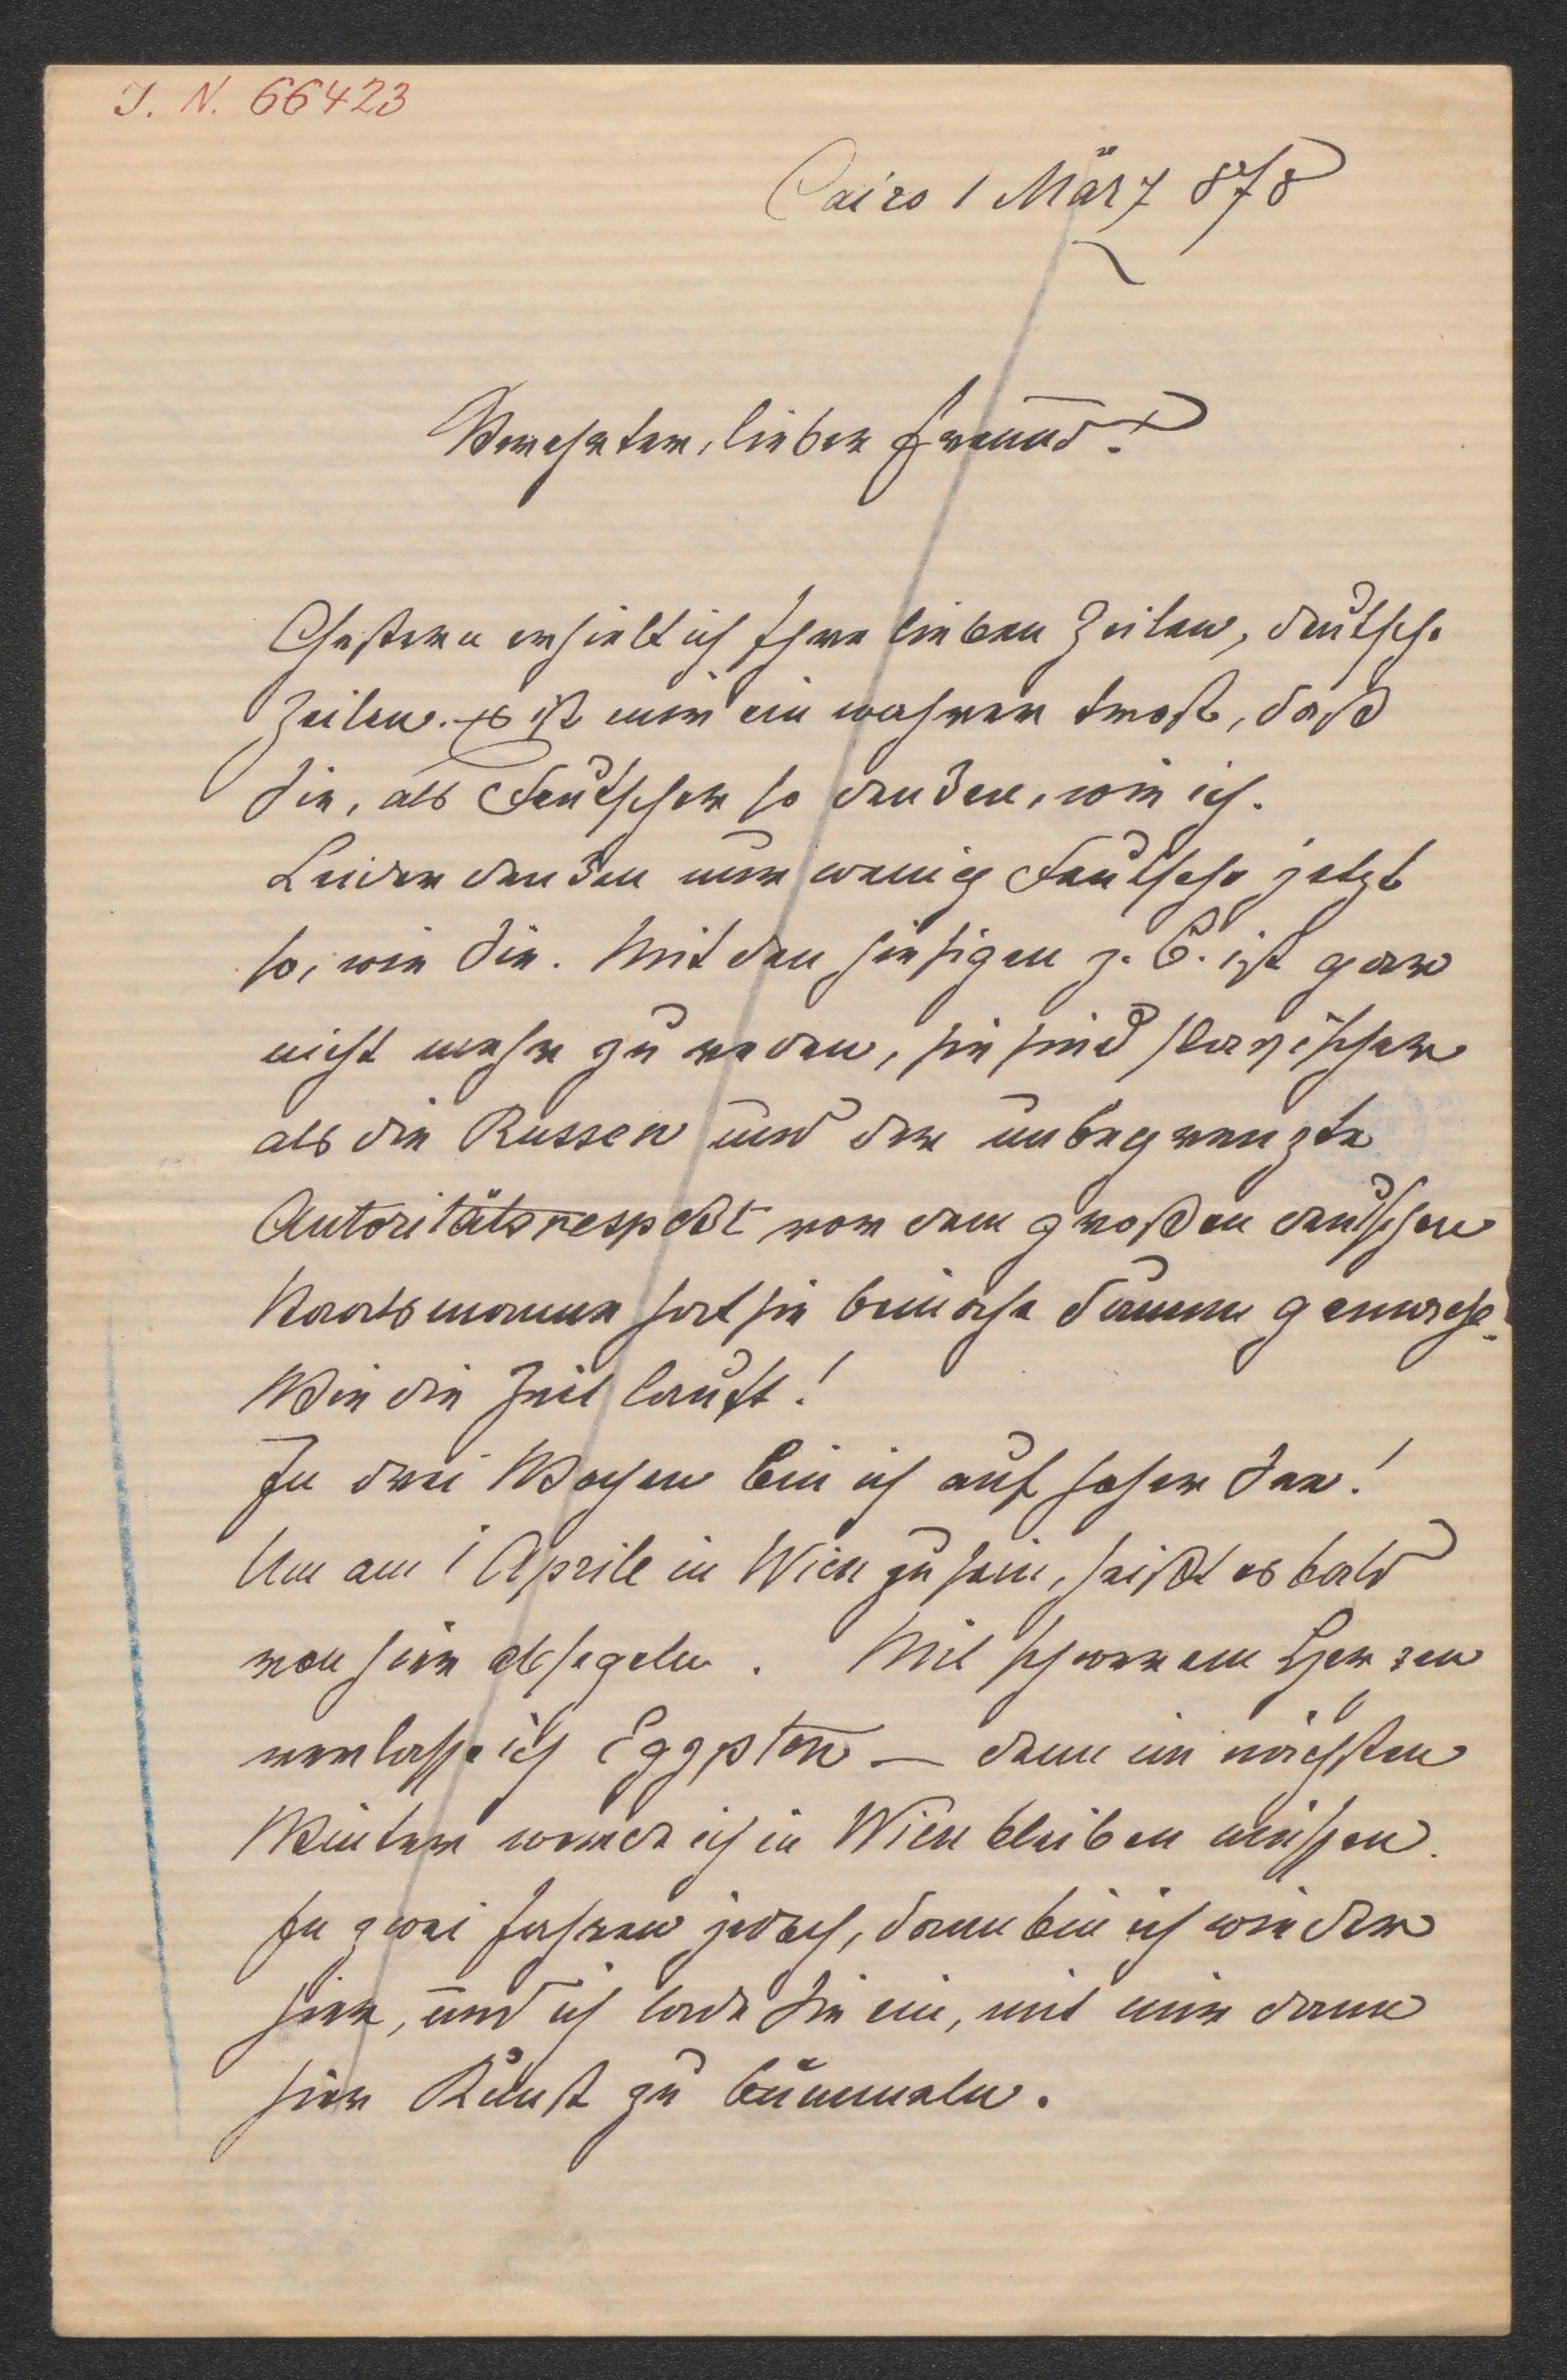 I. N. 66423
Cairo 1 März 878
Verehrter, lieber Freund!
Gestern erhielt ich Ihre lieben Zeilen, deutsche
Zeilen. Es ist mir ein wahrer Trost, daß
Sie, als Deutscher so denken, wie ich.
Leider denken nur wenig Deutsche jetzt
so, wie Sie. Mit den hiesigen z. B. ist gar
nicht mehr zu reden, sie sind slavischer
als die Russen und der unbegrenzte
Autoritätsrespekt vor dem großen deutschen
Staatsmanne hat sie beinahe dumm gemacht.
Wie die Zeit lauft!
In drei Wochen bin ich auf hoher See!
Um am 1 Aprile in Wien zu sein, heißt es bald
von hier absegeln. Mit schwerem Herzen
verlasse ich Egypten — denn im nächsten
Winter werde ich in Wien bleiben müssen.
In zwei Jahren jedoch, dann bin ich wieder
hier, und ich lade Sie ein, mit mir dann
hier Kunst zu bummeln.